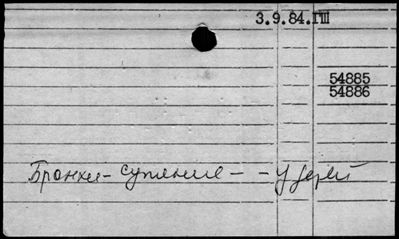 3.9.84.ГШ
54885
54886
Бронхи - сужение - - у детей